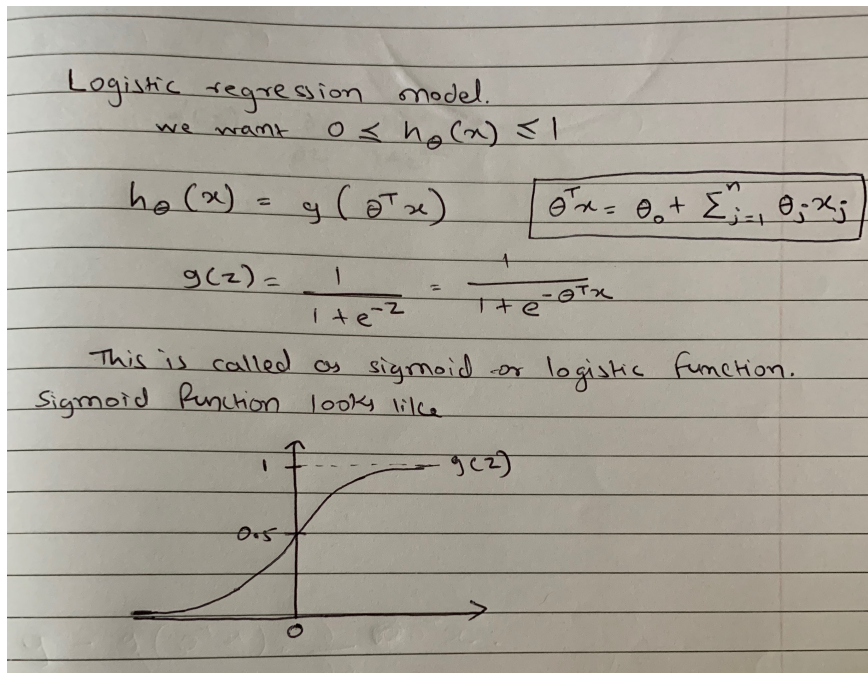 Logistic regression model.
we want 0 ≤ hθ(x) ≤ 1
hθ(x) = g(θᵀx)    θᵀx = θ₀ + Σⁿⱼ₌₁ θⱼxⱼ
g(z) = 1/(1 + e^-z) = 1/(1 + e^-θᵀx)
This is called as sigmoid or logistic function.
Sigmoid function looks like
1 g(z)
0.5
0